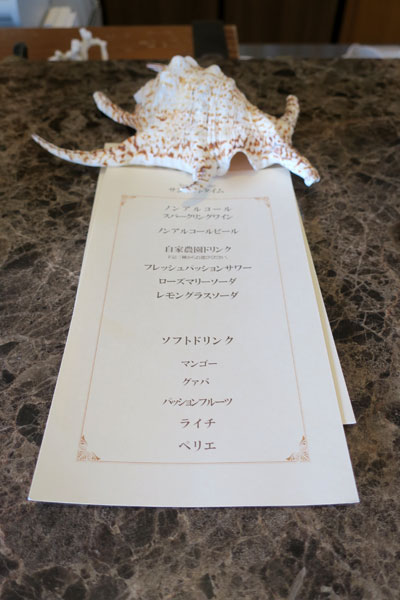 ノンアルコール
スパークリングワイン
ノンアルコールビール
自家農園ドリンク
フレッシュパッションサワー
ローズマリーソーダ
レモングラスソーダ
ソフトドリンク
マンゴー
グァバ
パッションフルーツ
ライチ
ペリエ